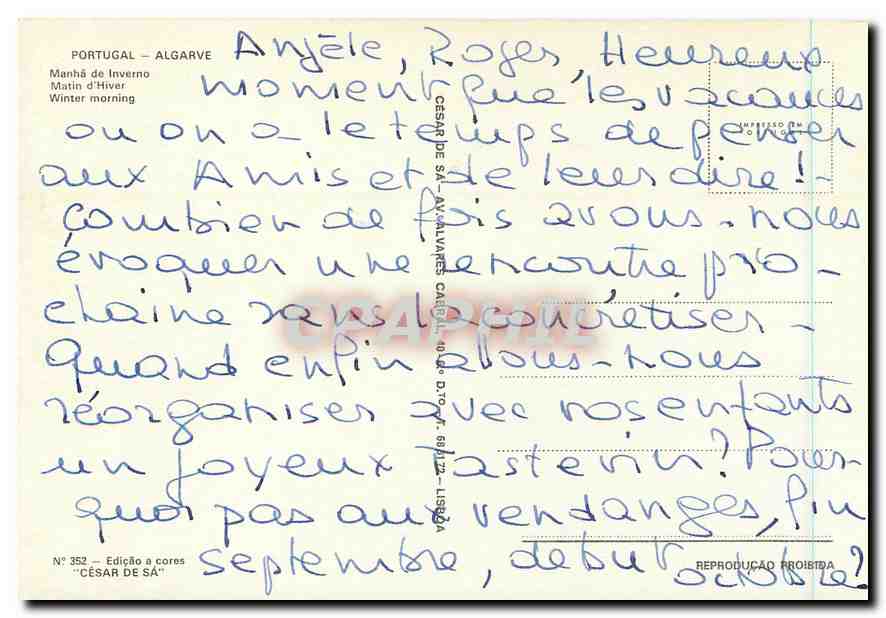 PORTUGAL – ALGARVE
Manhã de Inverno
Matin d'Hiver
Winter morning
Angèle, Roger, Heureux
moment que les vacances
ou on a le temps de penser
aux Amis et de leur dire! -
combien de fois avons-nous
évoquer une rencontre pro-
chaine sans la concrétiser -
Quand enfin allons-nous
réorganiser avec vos enfants
un joyeux Tastevin? Pour-
quoi pas aux vendanges, fin
septembre, debut
octobre?
IMPRESSO EM
PORTUGAL
CÉSAR DE SÁ – AV. ALVARES CABRAL, 40-6.º D.TO – T. 688172 – LISBOA
CPAPHIL
Nº 352 – Edição a cores
"CÉSAR DE SÁ"
REPRODUÇÃO PROIBIDA